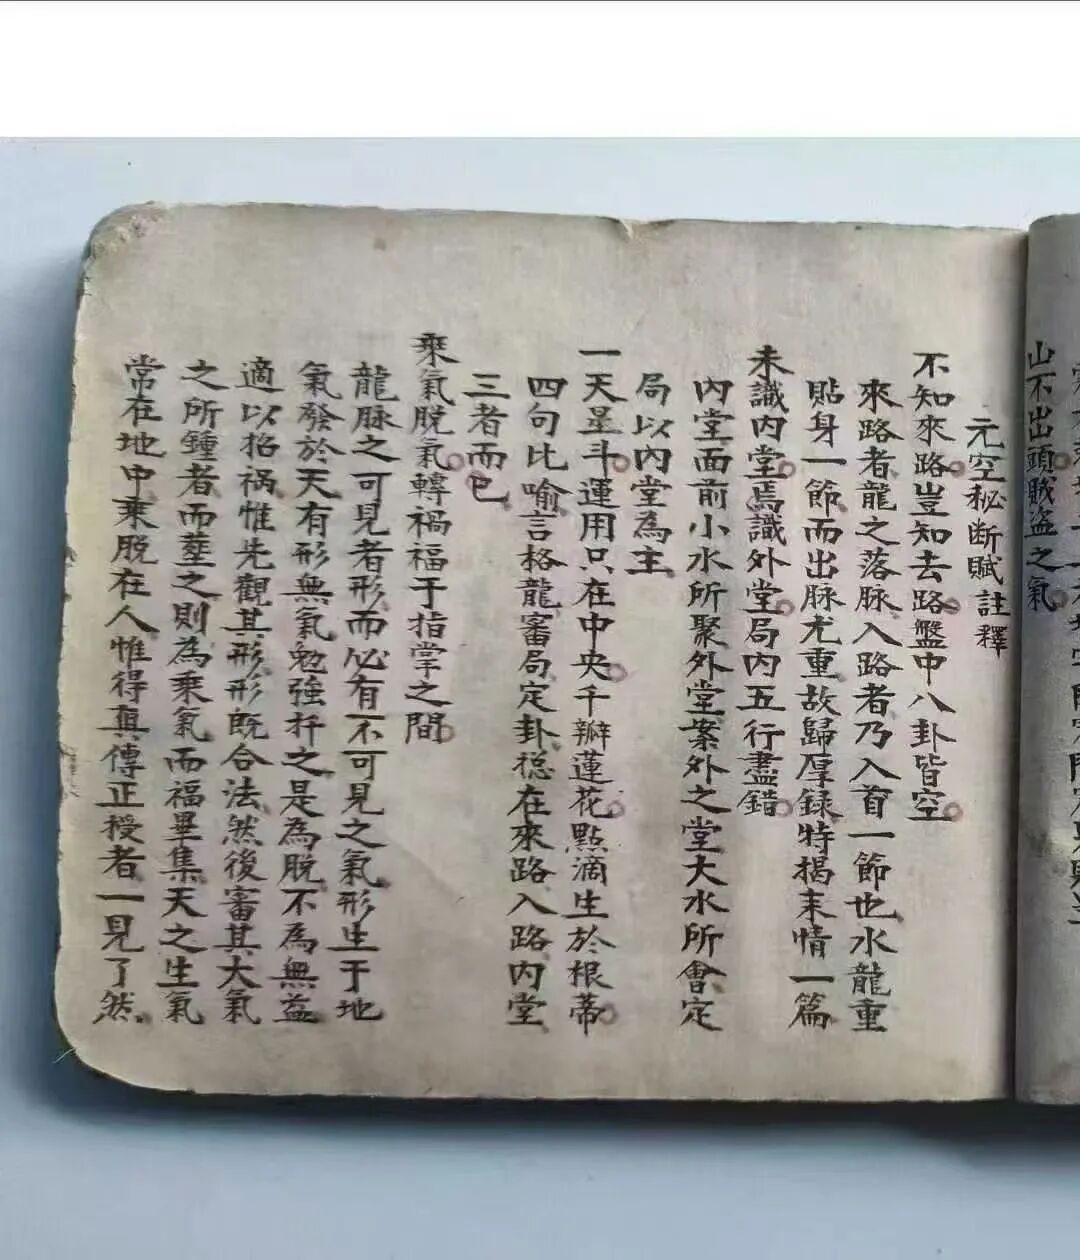 山不出頭賊盜之氣
元空秘断賦註釋
不知來路豈知去路盤中八卦皆空
來路者龍之落脉入路者乃入首一節也水龍重
貼身一節而出脉尤重故歸厚録特揭末情一篇
未識内堂焉識外堂局内五行盡錯
内堂面前小水所聚外堂案外之堂大水所會定
局以内堂為主
一天星斗運用只在中央千瓣蓮花點滴生於根蒂
四句比喻言格龍審局定卦穏在來路入路内堂
三者而已
乘氣脱氣轉禍福于指掌之間
龍脉之可見者形而必有不可見之氣形生于地
氣發於天有形無氣勉強扦之是為脱不為無益
適以招禍惟先觀其形形既合法然後審其大氣
之所鍾者而塟之則為乘氣而福畢集天之生氣
常在地中乘脱在人惟得真傳正授者一見了然